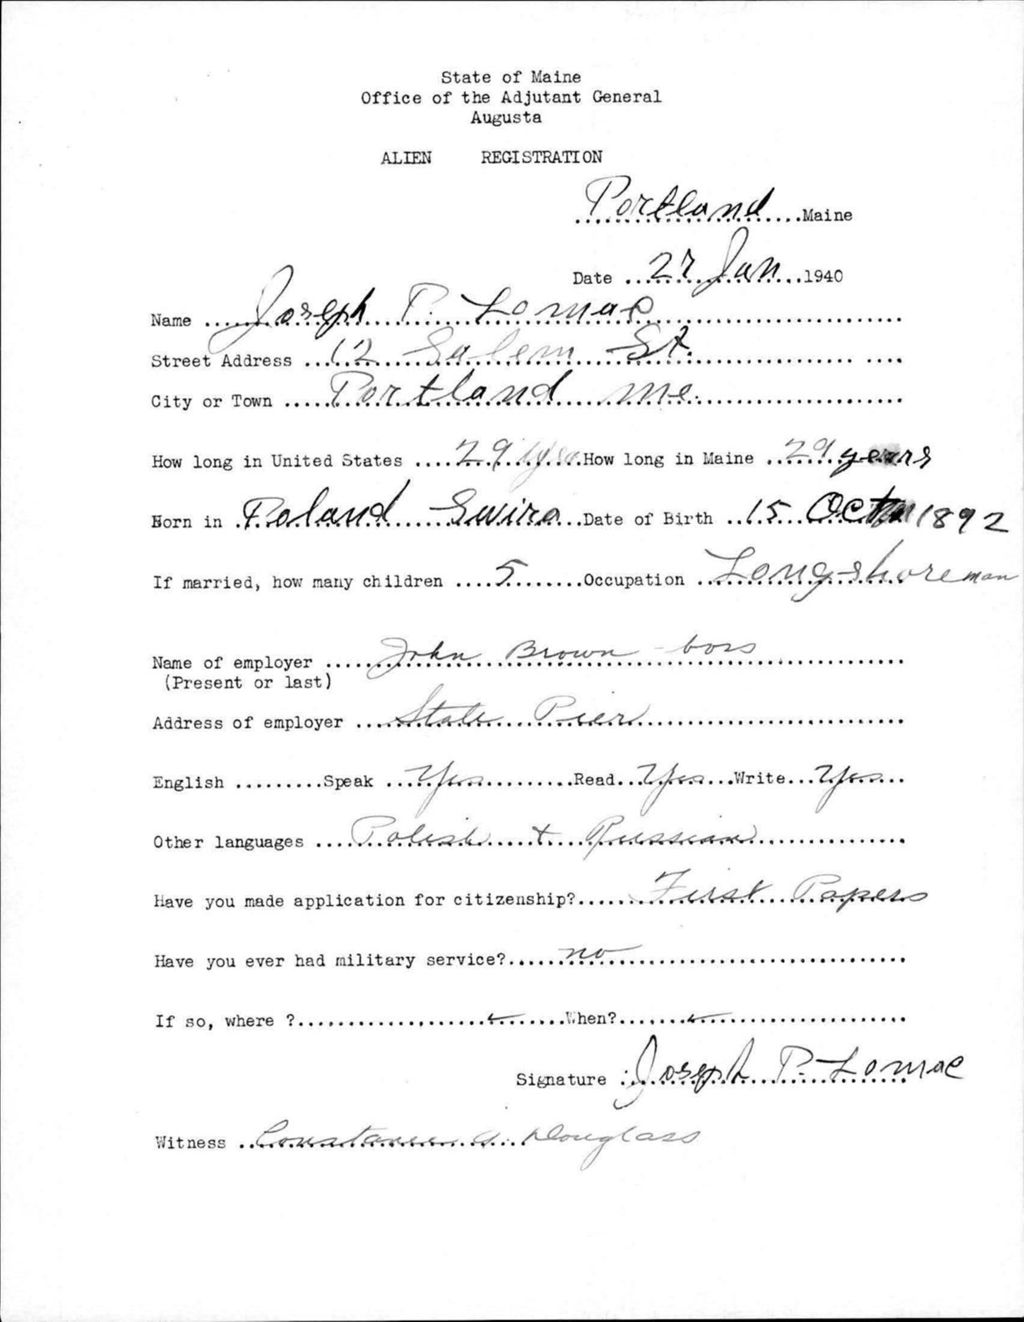 State of Maine
Office of the Adjutant General
Augusta
ALIEN REGISTRATION
Portland Maine
Date 27 Jan 1940
Name Joseph P. Lomac
Street Address 12 Salem St.
City or Town Portland Me.
How long in United States 29 yrs. How long in Maine 29 years
Born in Poland Swira Date of Birth 15 Oct 1892
If married, how many children 5 Occupation Longshoreman
Name of employer John Brown - boss
(Present or last)
Address of employer State Pier
English Speak Yes Read Yes Write Yes
Other languages Polish + Russian
Have you made application for citizenship? First Papers
Have you ever had military service? no
If so, where ? When?
Signature Joseph P. Lomac
Witness Constance A. Douglass